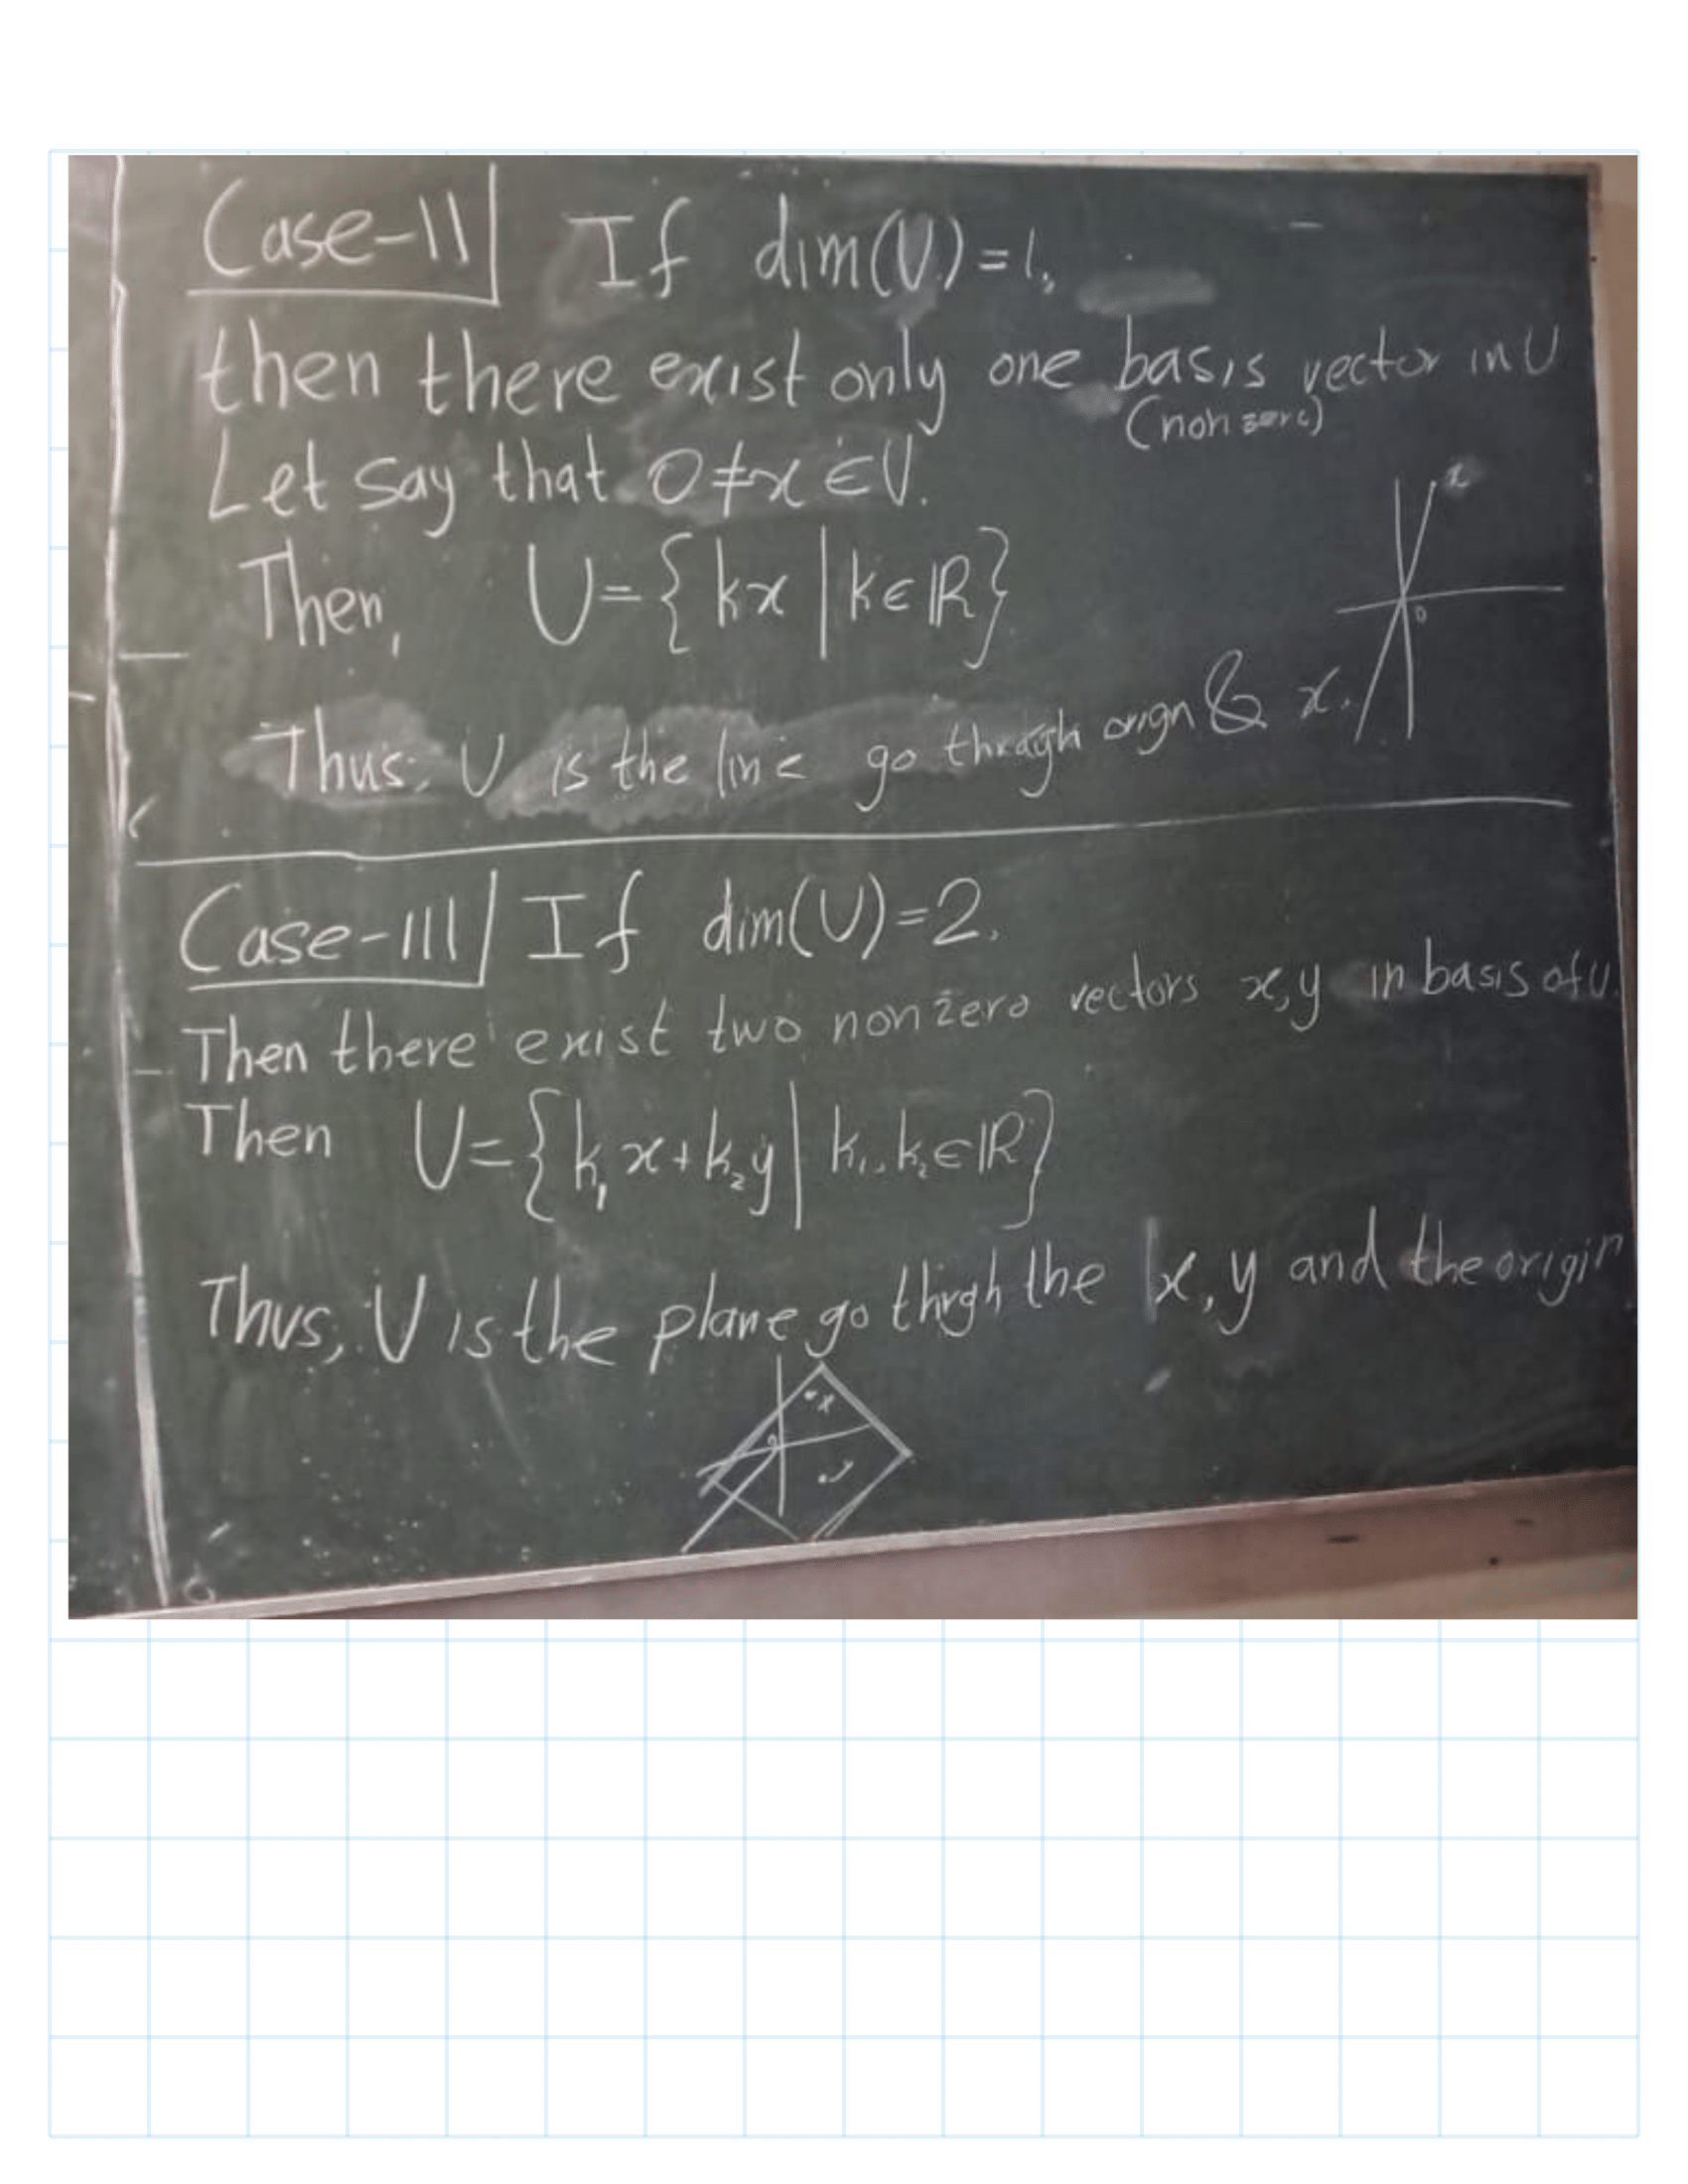 Case-II If dim(U)=1,
then there exist only one basis vector in U
(non zero)
Let say that 0≠x∈U.
Then, U={kx|k∈ℝ}
x
0
Thus, U is the line go through orign & x.
Case-III If dim(U)=2.
Then there exist two nonzero vectors x,y in basis of U.
Then U={k₁x+k₂y|k₁,k₂∈ℝ}
Thus, U is the plane go thrgh the x,y and the origin
x
0
y